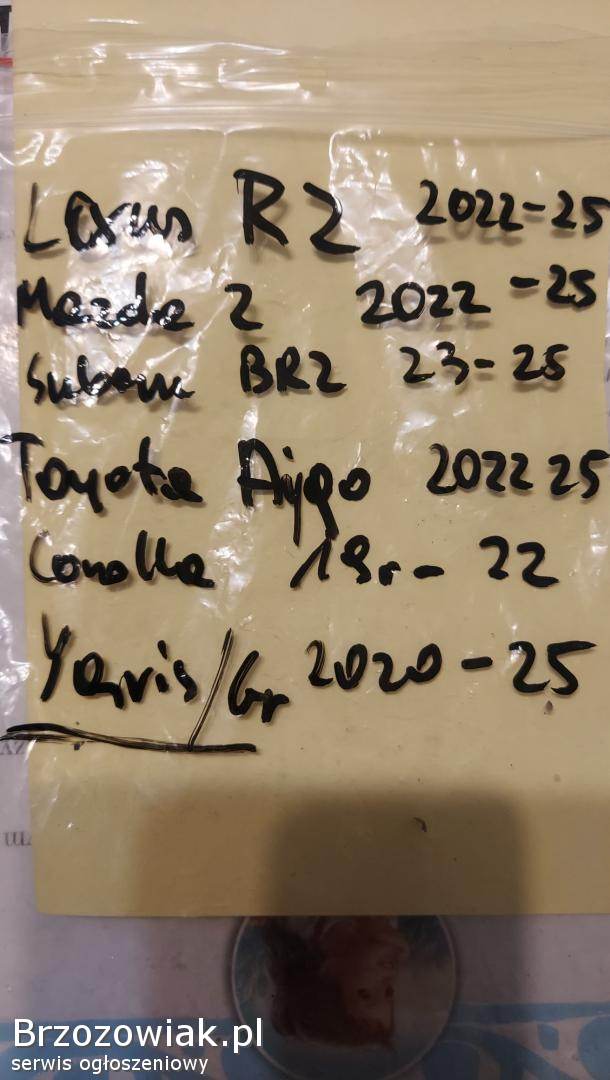 Lexus RZ 2022-25
Mazda 2 2022-25
Subaru BRZ 23-25
Toyota Aygo 2022 25
Corolla 19r- 22
Yaris/Gr 2020-25
Brzozowiak.pl
serwis ogłoszeniowy